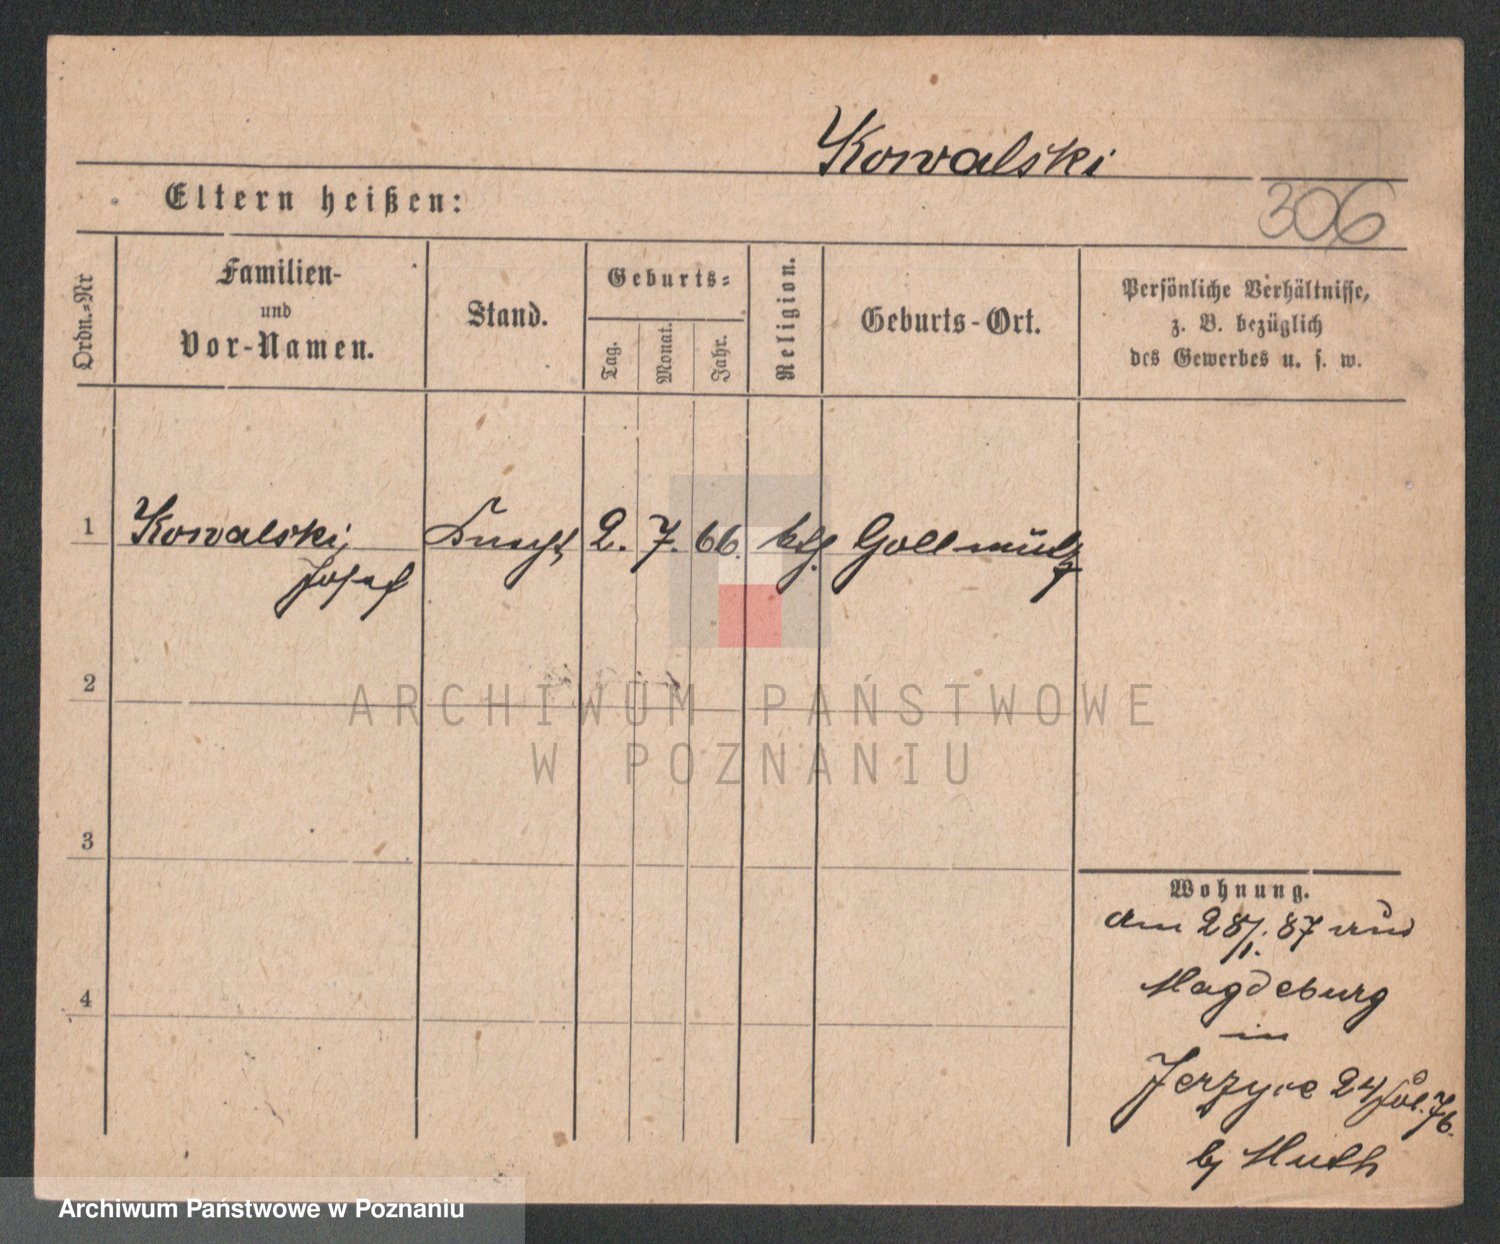 Kowalski
306
Eltern heißen:
Ordn.-Nr
Familien-
und
Vor-Namen.
Stand.
Geburts-
Tag.
Monat.
Jahr.
Religion.
Geburts-Ort.
Persönliche Verhältnisse,
z. B. bezüglich
des Gewerbes u. s. w.
1 Kowalski, Knecht, 2. 7. 66. kth. Gollmütz
Josef
2
ARCHIWUM PAŃSTWOWE
W POZNANIU
3
Wohnung.
am 28/1. 87 aus
Magdeburg
4
in
Jerzyce 24
b/ Muth
Archiwum Państwowe w Poznaniu